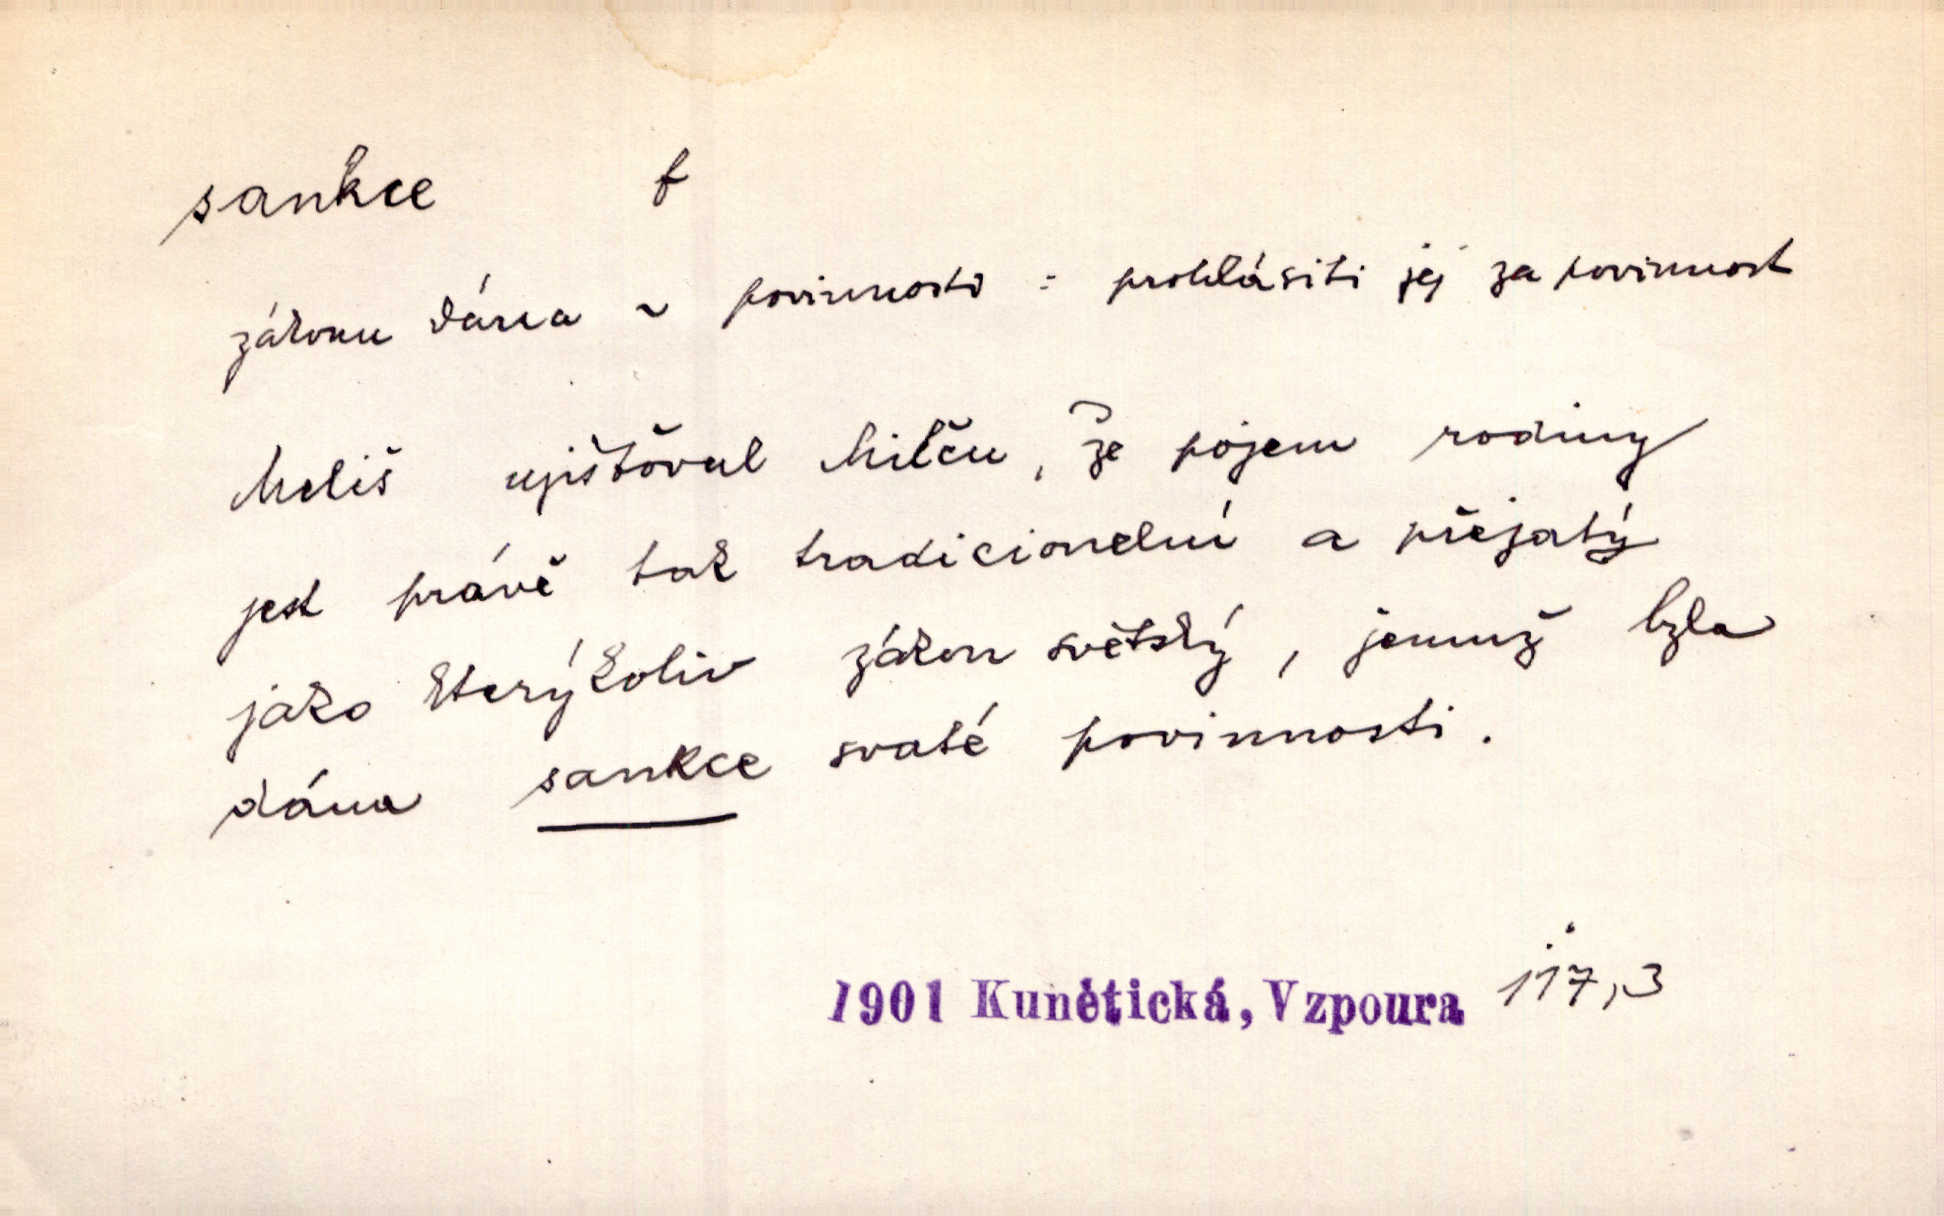 sankce f
zákonu dána ~ povinnosti = prohlásiti jej za povinnost
Meliš ujišťoval Milču, že pojem rodiny
jest právě tak tradicionelní a přejatý
jako kterýkoliv zákon světský, jemuž byla
dána sankce svaté povinnosti.
1901 Kunětická, Vzpoura 117,3